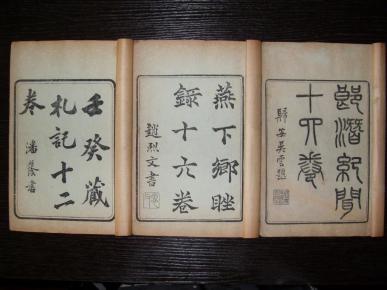 郎潛紀聞
十四卷
歸安吳雲題
燕下鄉脞
錄十六卷
趙烈文書
壬癸藏
札記十二
卷
潘書